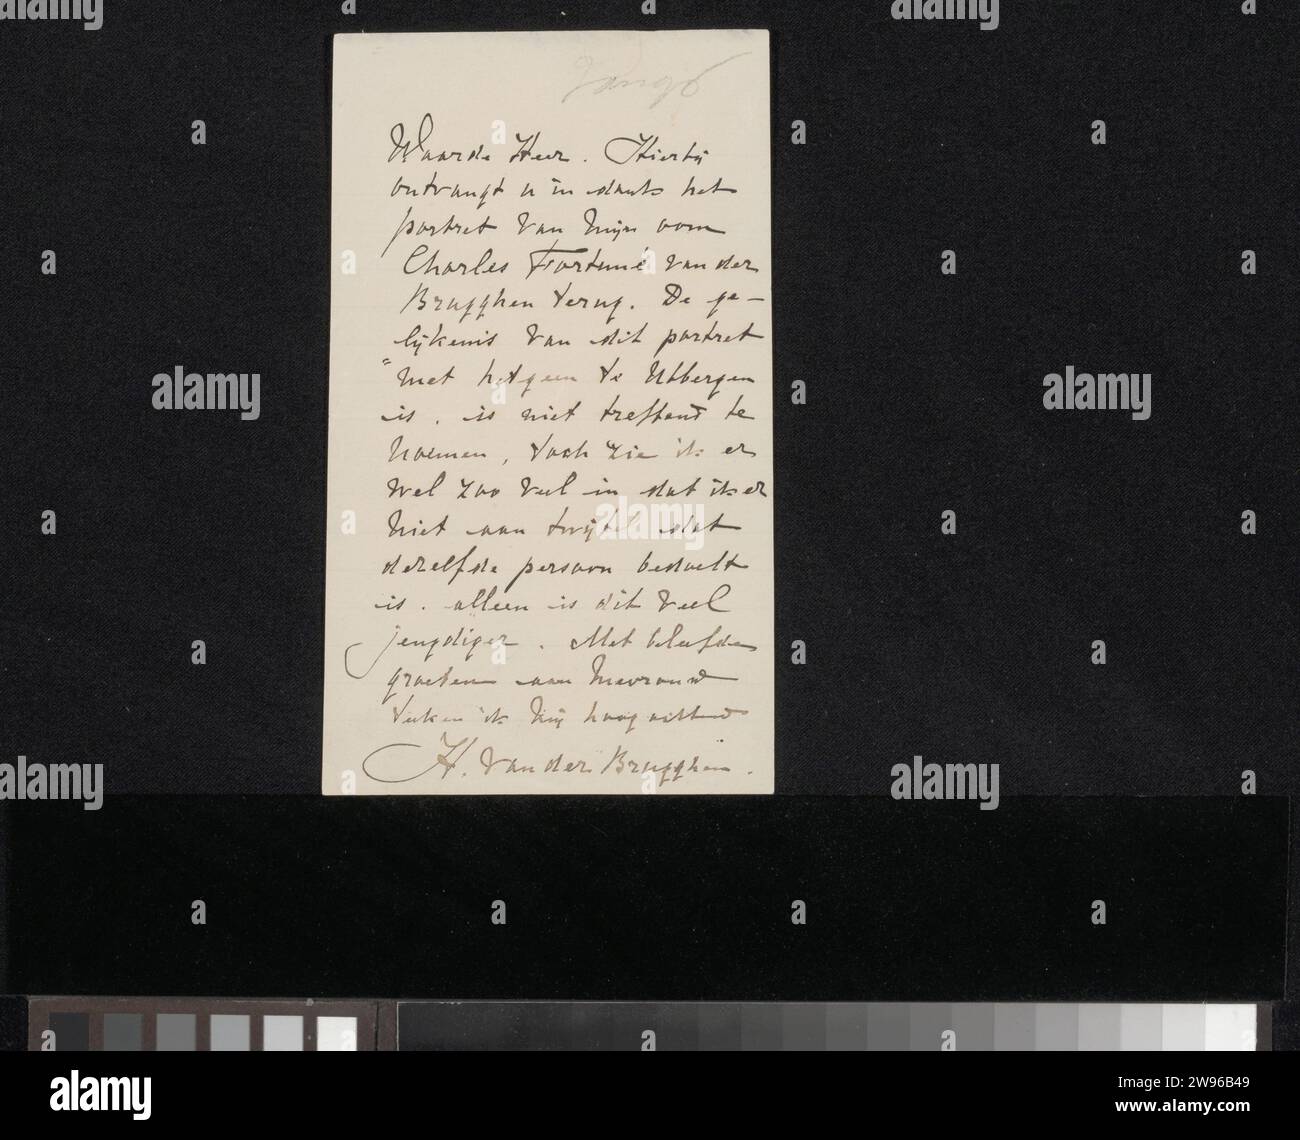 Waarde Heer. Hierbij
ontvangt u in dank het
portret van mijn oom
Charles Fortuné van der
Brugghen terug. De ge-
lijkenis van dit portret
"met hetgeen te Utbergen
is, is niet treffend te
noemen, toch zie ik er
wel zoo veel in dat ik er
niet aan twijfel dat
dezelfde persoon bedoelt
is. alleen is dit veel
jeugdiger. Met beleefde
groeten aan Mevrouw
teeken ik mij hoogachtend
H. van der Brugghen.
alamy
alamy
Image ID: 2W96B49
www.alamy.com